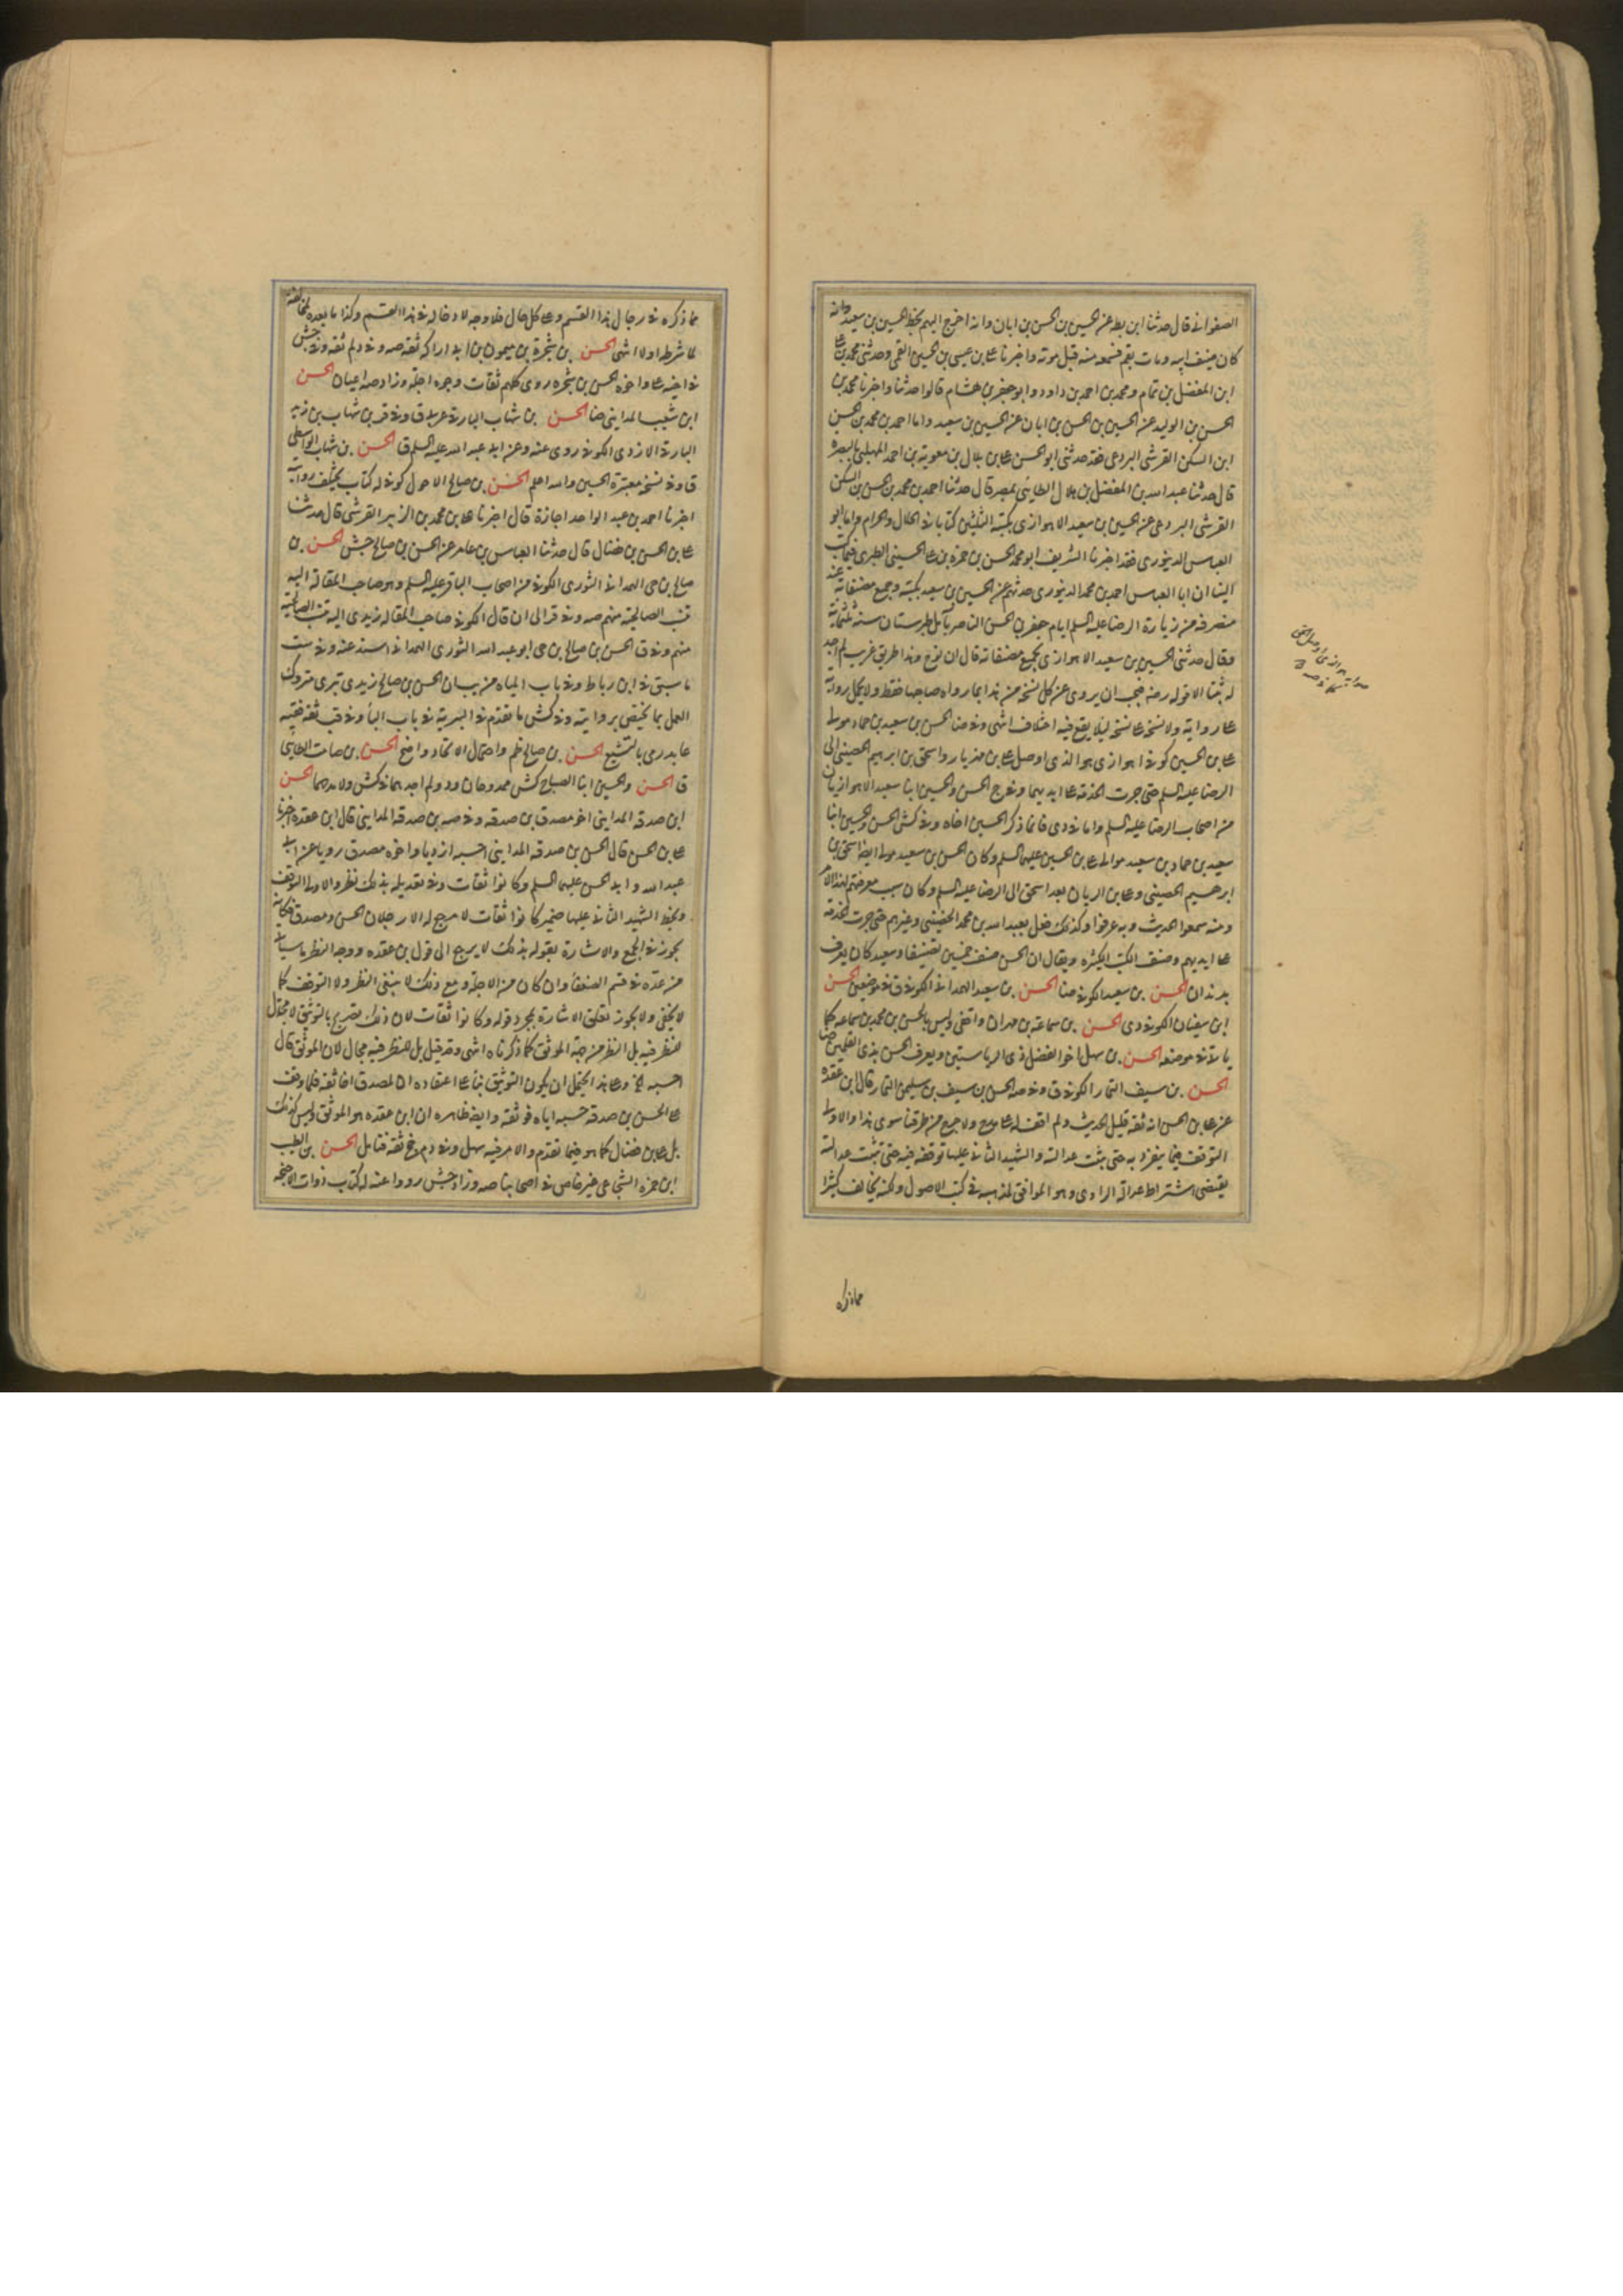 الصفوانى قال حدثنا ابن بطه عن الحسين بن الحسن بن ابان وانه اخرج اليهم بخط الحسين بن سعيد وانه
كان ضيف ابيه ومات بقم فسمعه منه قبل موته واخبرنا على بن عيسى بن الحسين القمى وحدثنى محمد بن على
ابن المفضل بن تمام ومحمد بن احمد بن داود وابو جعفر بن هشام قالوا حدثنا واخبرنا محمد بن
الحسن بن الوليد عن الحسين بن الحسن بن ابان عن الحسين بن سعيد واما احمد بن محمد بن الحسن
ابن السكن القرشى البردعى فقد حدثنى ابو الحسن على بن بلال بن معوية بن احمد المهلبى بالبصرة
قال حدثنا عبد الله بن المفضل بن هلال الطائى بمصر قال حدثنا احمد بن محمد بن الحسن بن السكن
القرشى البردعى عن الحسين بن سعيد الاهوازى بكتبه الثلثين كتابا فى الحلال والحرام واما ابو
العباس الدينورى فقد اخبرنا الشريف ابو محمد الحسن بن حمزه بن على الحسينى الطبرى فيما كتب
الينا ان ابا العباس احمد بن محمد الدينورى حدثهم عن الحسين بن سعيد بكتبه وجميع مصنفاته عند
منصرفه من زيارة الرضا عليه السلم ايام جعفر بن الحسن الناصر بآمل طبرستان سنة ثلثمائة
وقال حدثنى الحسين بن سعيد الاهوازى بجميع مصنفاته قال ابن نوح وهذا طريق غريب لم اجد
له ثبتا الا قوله رضه فيجب ان يروى عن كل نسخه من هذا بما رواه صاحبها فقط ولا يحمل رواية
على رواية ولا نسخة على نسخة ليلا يقع فيه اختلاف انتهى وفى ضا الحسن بن سعيد بن حماد مولى
على بن الحسين كوفى اهوازى هو الذى اوصل على بن مهزيار واسحق بن ابرهيم الحضينى الى
الرضا عليه السلم حتى جرت الخدمة على ايديهما وفى ج الحسن والحسين ابنا سعيد الاهوازيان
من اصحاب الرضا عليه السلم واما فى دى فانما ذكر الحسين اخاه وفى كش الحسن والحسين ابنا
سعيد بن حماد بن سعيد موالى على بن الحسين عليهما السلم وكان الحسن بن سعيد هو الذى اوصل اسحق بن
ابرهيم الحضينى وعلى بن الريان بعد اسحق الى الرضا عليه السلم وكان سبب معرفتهم لهذا الامر
ومنه سمعوا الحديث وبه عرفوا وكذلك فعل بعبد الله بن محمد الحضينى وغيرهم حتى جرت الخدمة
على ايديهم وصنف الكتب الكثيره ويقال ان الحسن صنف خمسين تصنيفا وسعيد كان يعرف
بدندان الحسن بن سعيد الكوفى ضا الحسن بن سعيد الهمدانى الكوفى ق فى موضعين الحسن
ابن سفيان الكوفى دى الحسن بن سماعة بن مهران واقفى وليس بالحسن بن محمد بن سماعه كما
يأتى فى موضعه الحسن بن سهل اخو الفضل ذى الرياستين ويعرف الحسن بذى القلمين ضا
الحسن بن سيف التمار الكوفى ق وفى صه الحسن بن سيف بن سليمن التمار قال ابن عقده
عن على بن الحسن انه ثقه قليل الحديث ولم اقف له على مدح ولا جرح من طرقنا سوى هذا والاولى
التوقف فيما ينفرد به حتى يثبت عدالته والشهيد الثانى عليها توقفه فيه حتى تثبت عدالته
يقتضى اشتراط عدالة الراوى وهو الموافق لمذهبه فى كتب الاصول ولكنه يخالف كثيرا
مما ذكره
مما ذكره فى رجال هذا القسم وعلى كل حال فلا وجه لادخاله فى هذا القسم وكذا ما بعده لمخالفته
لما شرطه اولا انتهى الحسن بن شجرة بن ميمون بن ابى اراكه ثقه صه وفى د لم ثقه وفى جش
فى اخيه على واخوه الحسن بن شجره روى كلهم ثقات وجوه اجلة وزاد صه اعيان الحسن
ابن شعيب المداينى ضا الحسن بن شهاب البارقى عربى ق وفى قر بن شهاب بن زيد
البارقى الازدى الكوفى روى عنه وعن ابى عبد الله عليه السلم ق الحسن بن شهاب الواسطى
ق وفى نسخة معتبرة الحسين والله اعلم الحسن بن صالح الاحول كوفى له كتاب يختلف روايته
اخبرنا احمد بن عبد الواحد اجازة قال اخبرنا على بن محمد بن الزبير القرشى قال حدثنا
على بن الحسن بن فضال قال حدثنا العباس بن عامر عن الحسن بن صالح جش الحسن بن
صالح بن حى الهمدانى الثورى الكوفى من اصحاب الباقر عليه السلم وهو صاحب المقالة اليه
تنسب الصالحية منهم صه وفى قر الى ان قال الكوفى صاحب المقاله زيدى اليه تنسب الصالحية
منهم وفى ق الحسن بن صالح بن حى ابو عبد الله الثورى الهمدانى اسند عنه وفى ست
ما سبق فى ابن رباط وفى باب المياه من يب ان الحسن بن صالح زيدى تبرى متروك
العمل بما يختص بروايته وفى كش ما تقدم فى البترية فى باب الباء وفى قب ثقه فقيه
عابد رمى بالتشيع الحسن بن صالح ظم واحتمال الاتحاد واضح الحسن بن صامت الطايى
ق الحسن والحسين ابنا الصباح كش ممدوحان ود ولم اجدهما فى كش ولا مدحهما الحسن
ابن صدقه المداينى اخو مصدق بن صدقه وفى صه بن صدقه المداينى قال ابن عقده اخبرنا
على بن الحسن قال الحسن بن صدقه المداينى احسبه ازديا واخوه مصدق رويا عن ابى
عبد الله وابى الحسن عليهما السلم وكانوا ثقات وفى تعديله بذلك نظر والاولى التوقف
وبخط الشهيد الثانى عليها ضمير كانوا ثقات لا مرجع له الا رجلان الحسن ومصدق فكانه
تجوز فى الجمع والاشارة بقوله بذلك لا يرجع الى قول بن عقده ووجه النظر ما سيأتى
من عده فى قسم الضعفاء وان كان من الاجلة ومع ذلك لا ينبغى النظر ولا التوقف كما
لا يخفى ولا يجوز تعلق الاشارة بمجرد قوله وكانوا ثقات لان ذلك تصريح بالتوثيق لا مجال
للنظر فيه بل النظر من جهة الموثق كما ذكرناه انتهى وقد قيل بل للنظر فيه مجال لان الموثق قال
احسبه الخ وعلى هذا يحتمل ان يكون التوثيق بناء على اعتقاده ان لمصدق اخا ثقة فلما وقف
على الحسن بن صدقه حسبه اياه فوثقه وايضا ظاهره ان ابن عقده هو الموثق وليس كذلك
بل على بن فضال كما هو فيما تقدم والامر فيه سهل وفى د م جخ ثقه فتامل الحسن بن الطيب
ابن حمزه الشجاعى غير خاص فى اصحابنا صه وزاد جش رووا عنه له كتاب ذوات الاجنحه